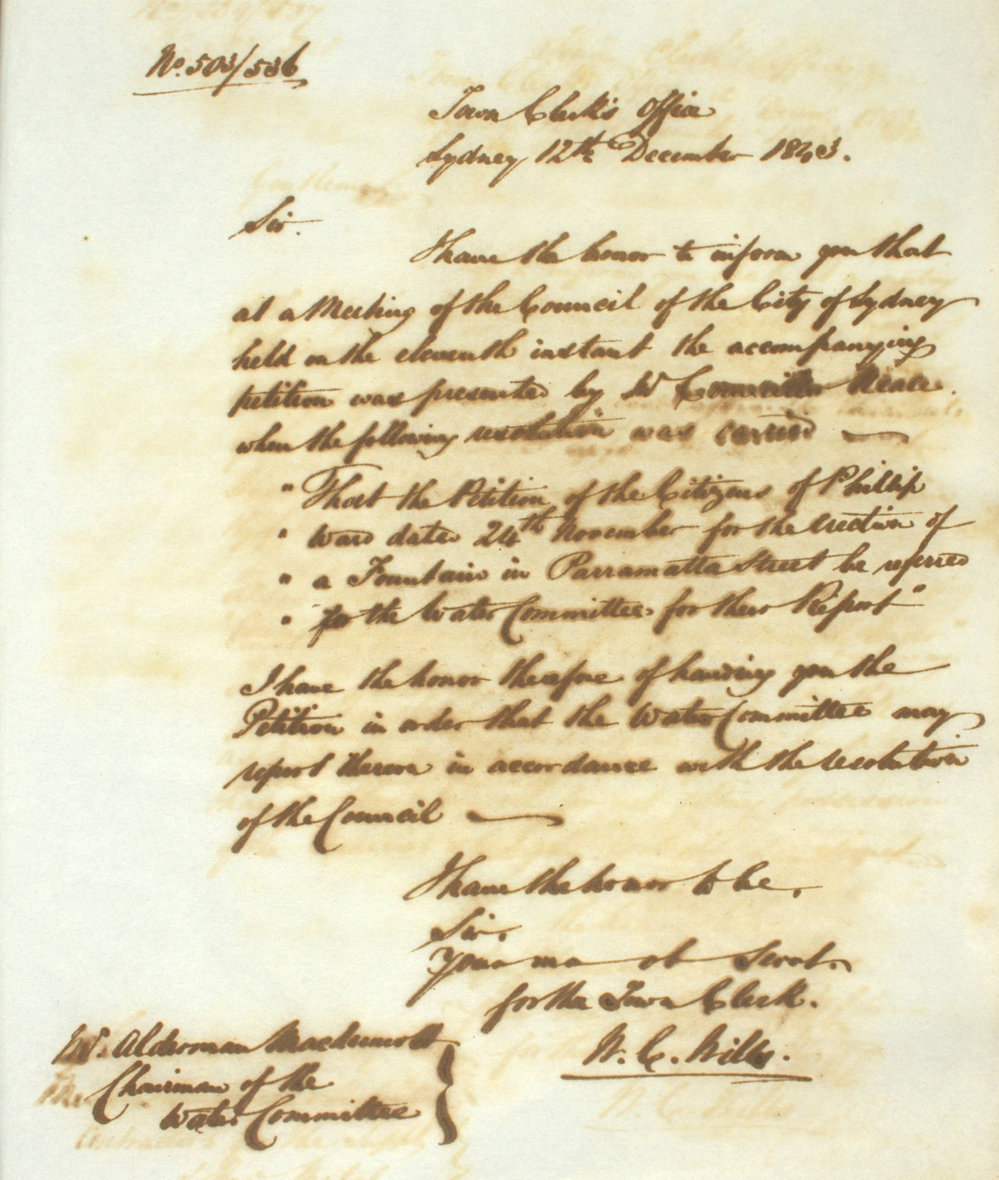 No. 503/536
Town Clerk's Office
Sydney 12th December 1843.
Sir.
I have the honor to inform you that
at a Meeting of the Council of the City of Sydney
held on the eleventh instant the accompanying
petition was presented by Mr Councillor Neale.
when the following resolution was carried —
" That the Petition of the Citizens of Phillip
" Ward dated 24th November for the erection of
" a Fountain in Parramatta Street be referred
" for the Water Committee for their Report"
I have the honor therefore of handing you the
Petition in order that the Water Committee may
report thereon in accordance with the resolution
of the Council —
I have the honor to be,
Sir,
Your ob Servt.
for the Town Clerk.
W. C. Wills.
Alderman Macdermott
Chairman of the
Water Committee